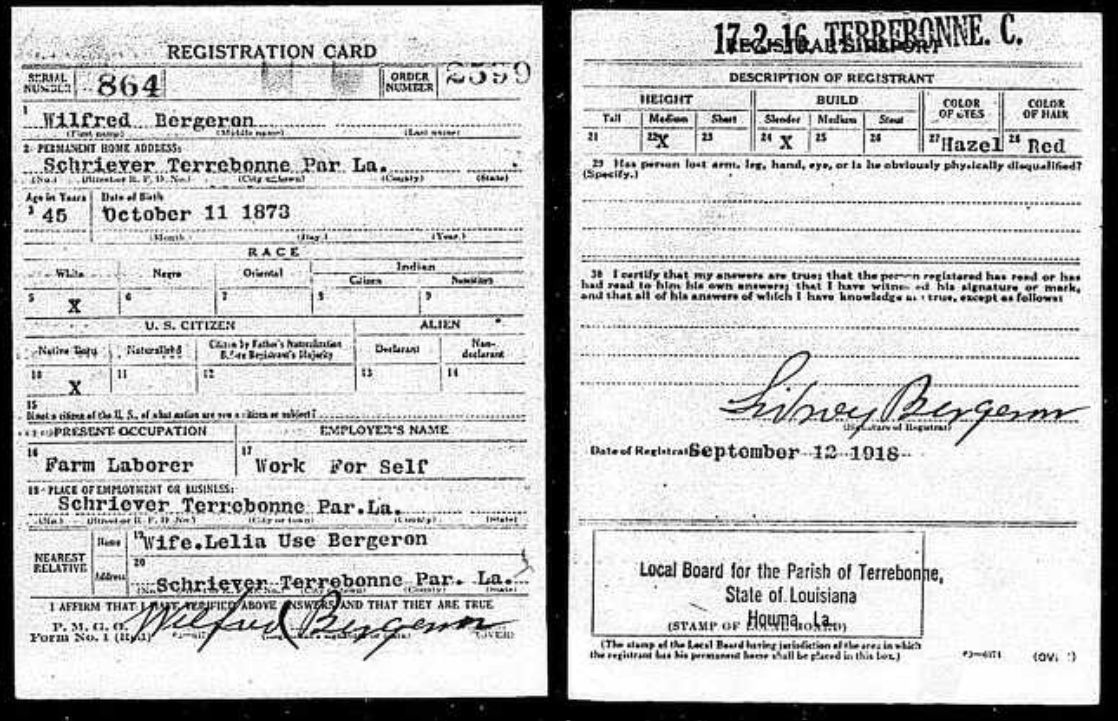 REGISTRATION CARD
SERIAL NUMBER 864
ORDER NUMBER 2599
1 Wilfred Bergeron
(First name) (Middle name) (Last name)
2- PERMANENT HOME ADDRESS:
Schriever Terrebonne Par La.
(No.) (Street or R. F. D. No.) (City or town) (County) (State)
Age in Years Date of Birth
3 45 October 11 1873
(Month) (Day) (Year.)
RACE
White Negro Oriental Indian
Citizen
5 X 6 7 8 9
U. S. CITIZEN ALIEN
Native Born Naturalized Citizen by Father's Naturalization Before Registrant's Majority Declarant Non-declarant
10 X 11 12 13 14
15
If not a citizen of the U. S., of what nation are you a citizen or subject?
PRESENT OCCUPATION EMPLOYER'S NAME
16 Farm Laborer 17 Work For Self
18 - PLACE OF EMPLOYMENT OR BUSINESS:
Schriever Terrebonne Par.La.
(No.) (Street or R. F. D. No.) (City or town) (County) (State)
NEAREST RELATIVE
Name 19 Wife.Lelia Use Bergeron
Address 20 Schriever Terrebonne Par. La.
(No.) (City or town) (County) (State)
I AFFIRM THAT I HAVE VERIFIED ABOVE ANSWERS AND THAT THEY ARE TRUE
P. M. G. O.
Form No. 1 (Red) Wilfred Bergeron (OVER)
17-2-16 TERREBONNE. C.
REGISTRAR'S REPORT
DESCRIPTION OF REGISTRANT
HEIGHT BUILD COLOR OF EYES COLOR OF HAIR
Tall Medium Short Slender Medium Stout
21 22 X 23 24 X 25 26 27 Hazel 28 Red
29 Has person lost arm, leg, hand, eye, or is he obviously physically disqualified?
(Specify.)
30 I certify that my answers are true; that the person registered has read or has
had read to him his own answers; that I have witnessed his signature or mark,
and that all of his answers of which I have knowledge are true, except as follows:
Sidney Bergeron
(Signature of Registrar)
Date of Registrat September 12 1918
Local Board for the Parish of Terrebonne,
State of Louisiana
Houma, La.
(STAMP OF LOCAL BOARD)
(The stamp of the Local Board having jurisdiction of the area in which
the registrant has his permanent home shall be placed in this box.)
(OVER)